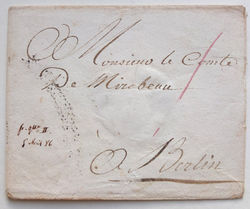 Monsieur le Comte
De Mirabeau
à Berlin